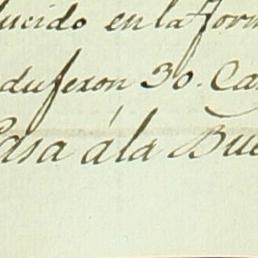 ucido en la form
dujeron 30. Ca
Casa á la Bue